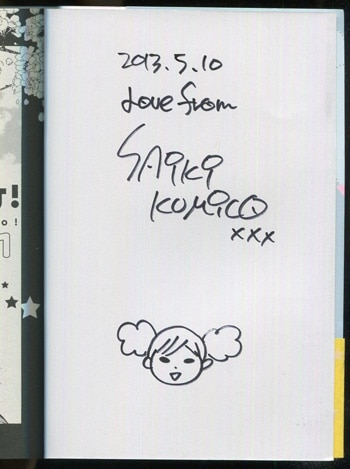 2013.5.10
Love from
SAiKi
KUMiCO
xxx
!
o!
1